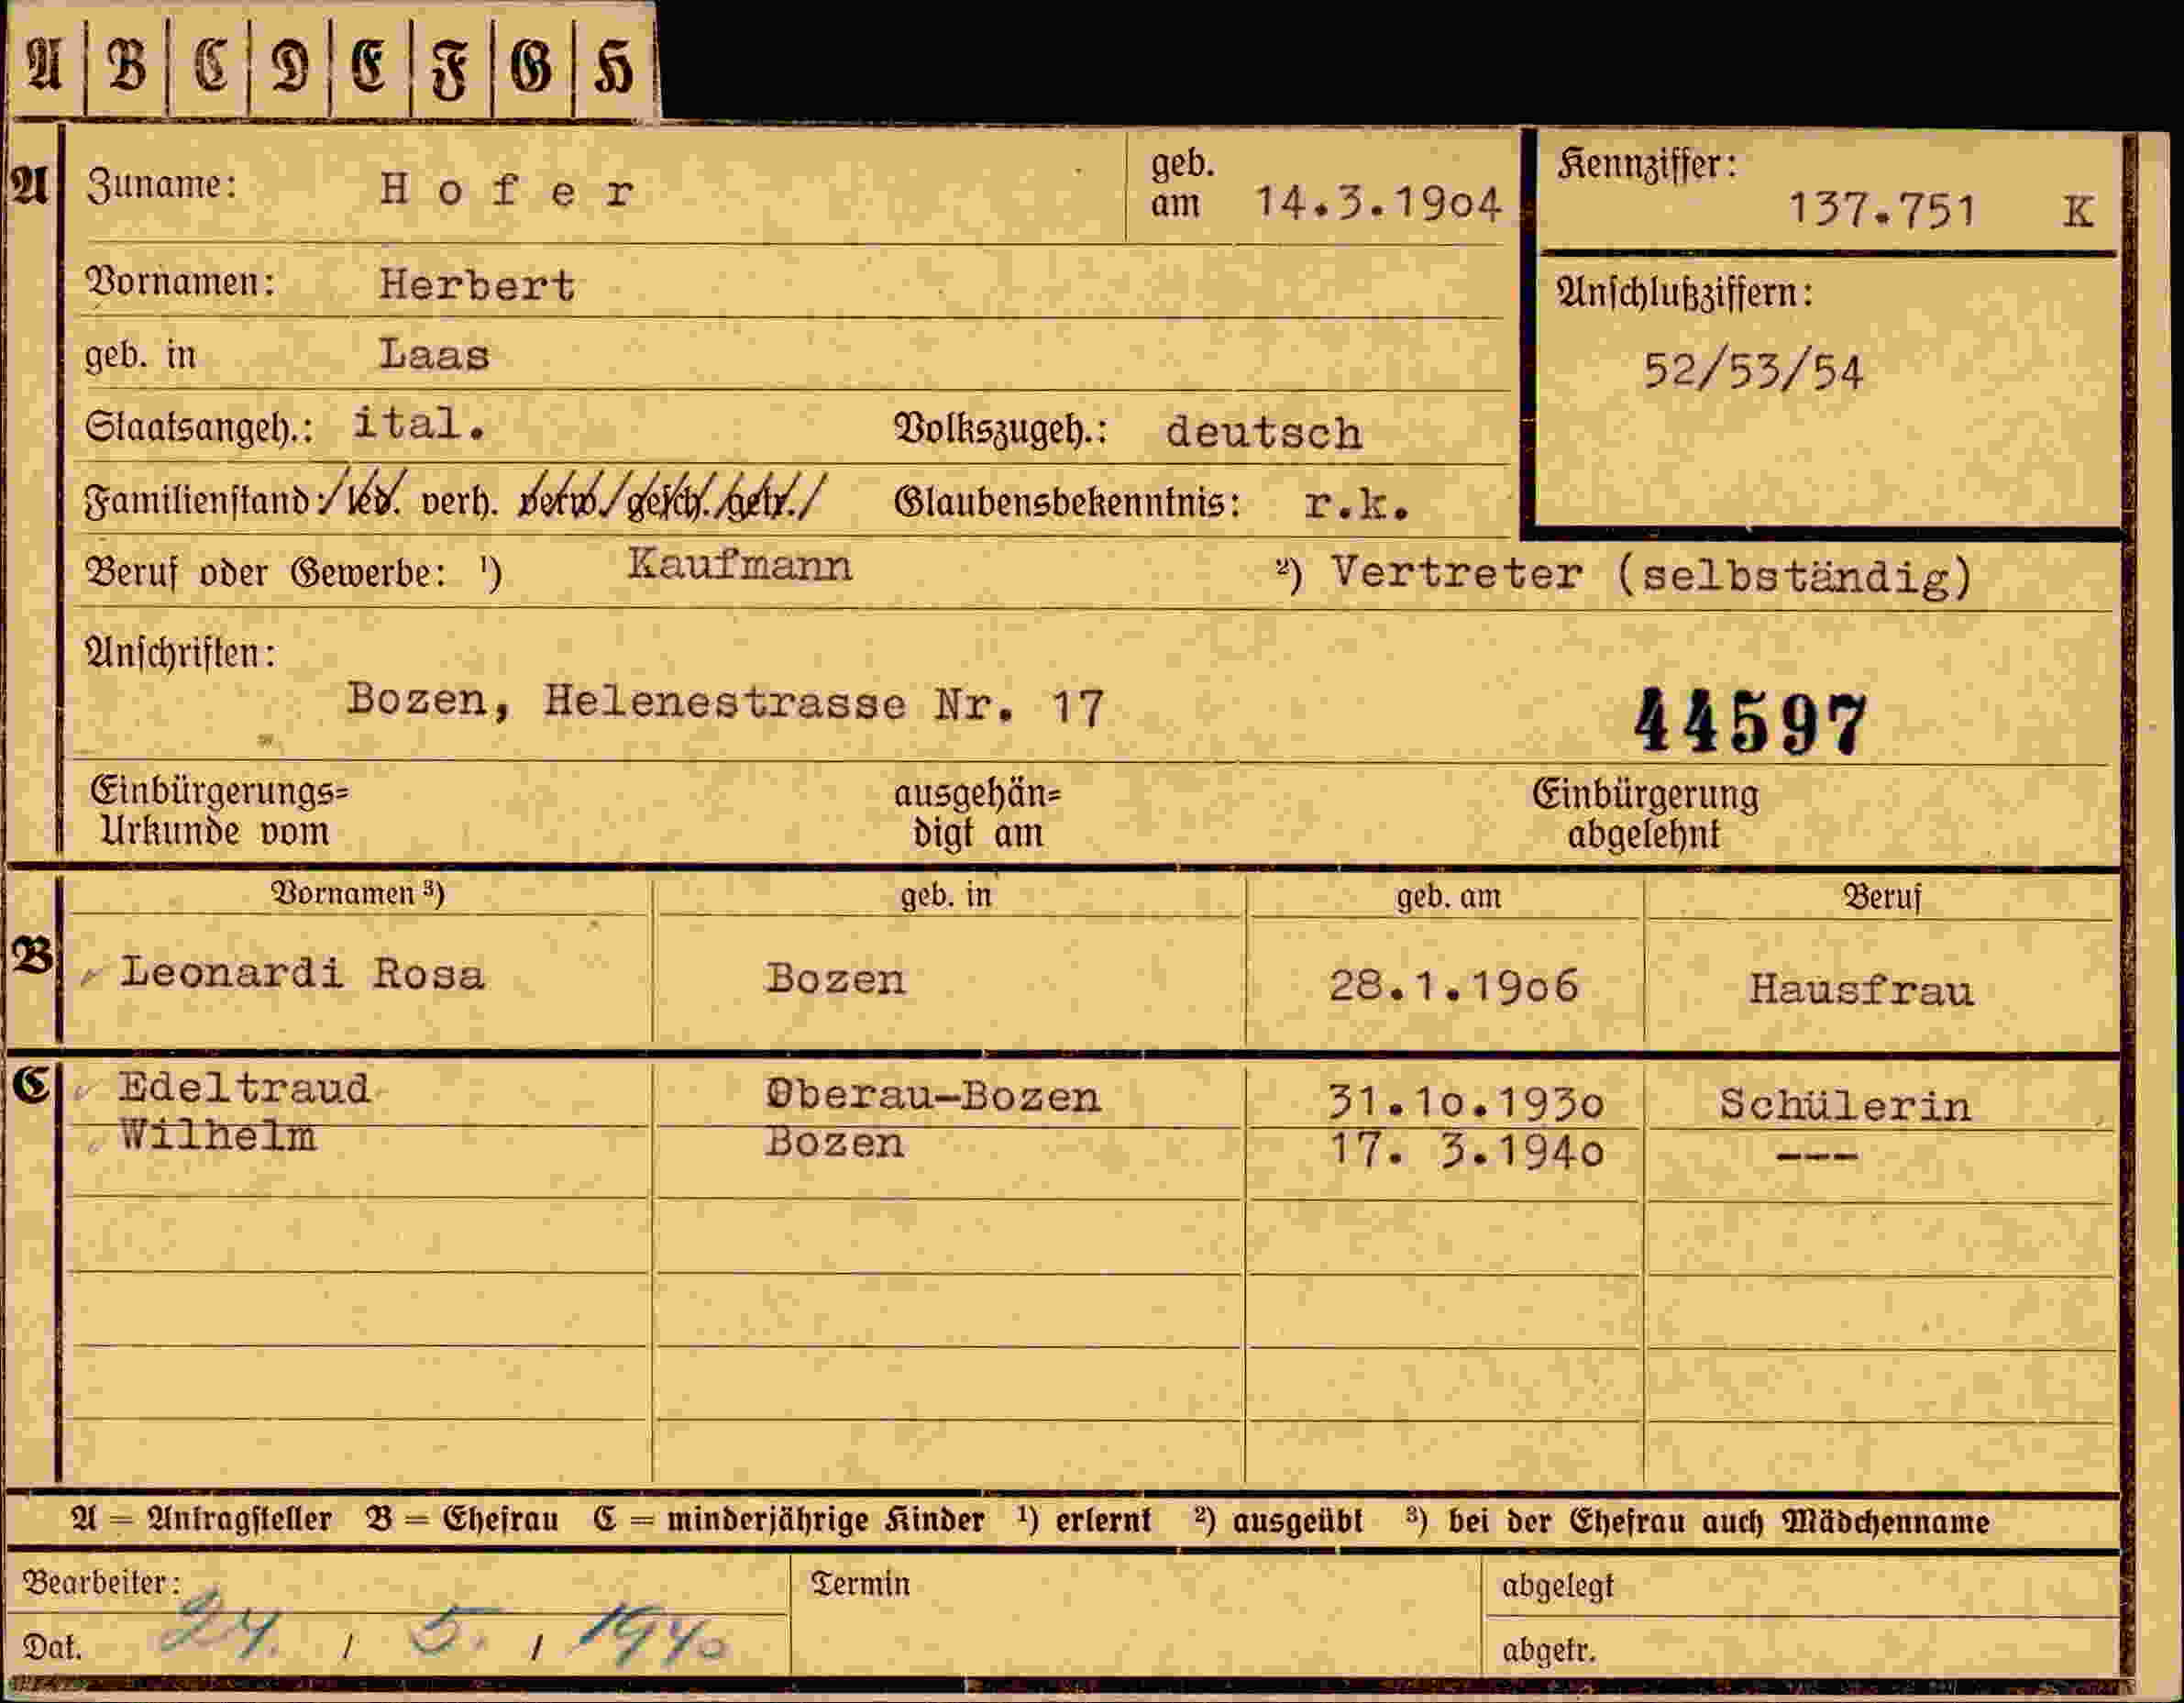 A B C D E F G H
A Zuname: Hofer geb. am 14.3.1904 Kennziffer: 137.751 K
Vornamen: Herbert Anschlußziffern:
geb. in Laas 52/53/54
Staatsangeh.: ital. Volkszugeh.: deutsch
Familienstand: /led. verh. verw./gesch./getr./ Glaubensbekenntnis: r.k.
Beruf oder Gewerbe: ¹) Kaufmann ²) Vertreter (selbständig)
Anschriften:
Bozen, Helenestrasse Nr. 17 44597
Einbürgerungs= ausgehän= Einbürgerung
Urkunde vom digt am abgelehnt
Vornamen ³) geb. in geb. am Beruf
B Leonardi Rosa Bozen 28.1.1906 Hausfrau
C Edeltraud Oberau-Bozen 31.10.1930 Schülerin
Wilhelm Bozen 17. 3.1940 ---
A = Antragsteller B = Ehefrau C = minderjährige Kinder ¹) erlernt ²) ausgeübt ³) bei der Ehefrau auch Mädchenname
Bearbeiter: Termin abgelegt
Dat. 24. / 5. / 1940 abgetr.